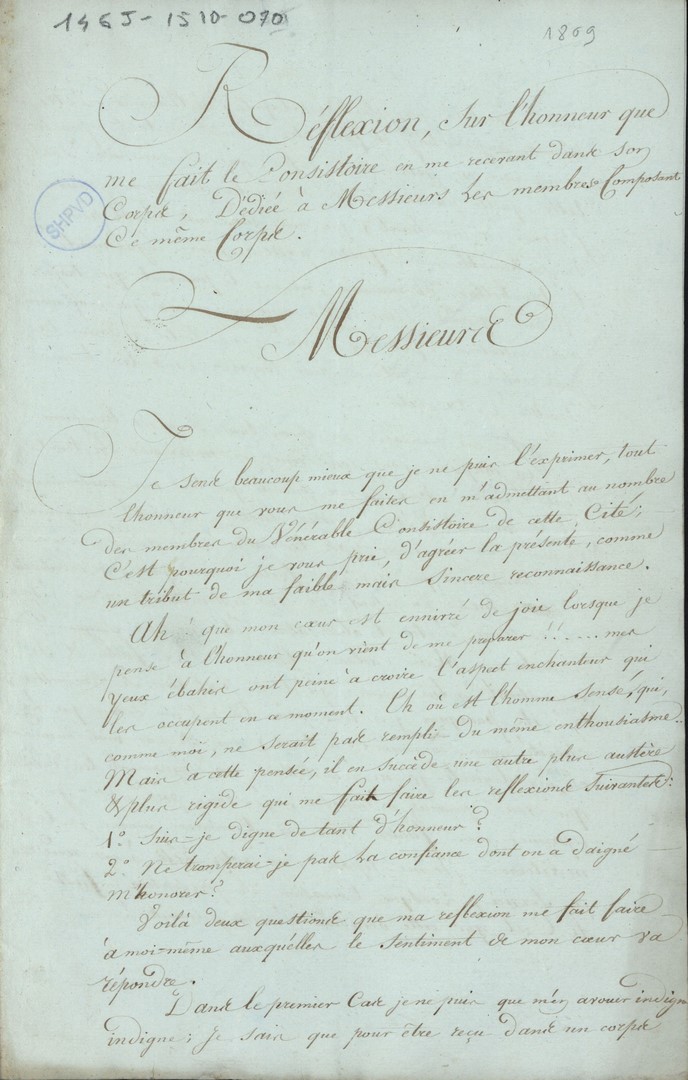 146J-1510-070
1809
Réflexion, sur l'honneur que
me fait le Consistoire en me recevant dans son
Corps, Dédiée à Messieurs les membres Composant
Ce même Corps.
SHPVD
Messieurs
Je sens beaucoup mieux que je ne puis l'exprimer, tout
l'honneur que vous me faites en m'admettant au nombre
des membres du Vénérable Consistoire de cette Cité;
C'est pourquoi je vous prie, d'agréer la présente, comme
un tribut de ma faible mais sincere reconnaissance.
Ah! que mon cœur est ennivré de joie lorsque je
pense à l'honneur qu'on vient de me préparer!!...... mes
yeux ébahis ont peine à croire l'aspect enchanteur qui
les occupent en a moment. Eh où est l'homme sensé, qui,
comme moi, ne serait pas rempli du même enthousiasme.
Mais à cette pensée, il en succède une autre plus austère
& plus rigide qui me fait faire les reflexions suivantes:
1.° Suis-je digne de tant d'honneur?
2.° Ne tromperai-je pas la confiance dont on a daigné
m'honorer?
Voilà deux questions que ma reflexion me fait faire
à moi-même auxquélles le sentiment de mon cœur va
répondre.
Dans le premier Cas je ne puis que m'en avouer indigne
indigne; Je sais que pour être reçu dans un corps